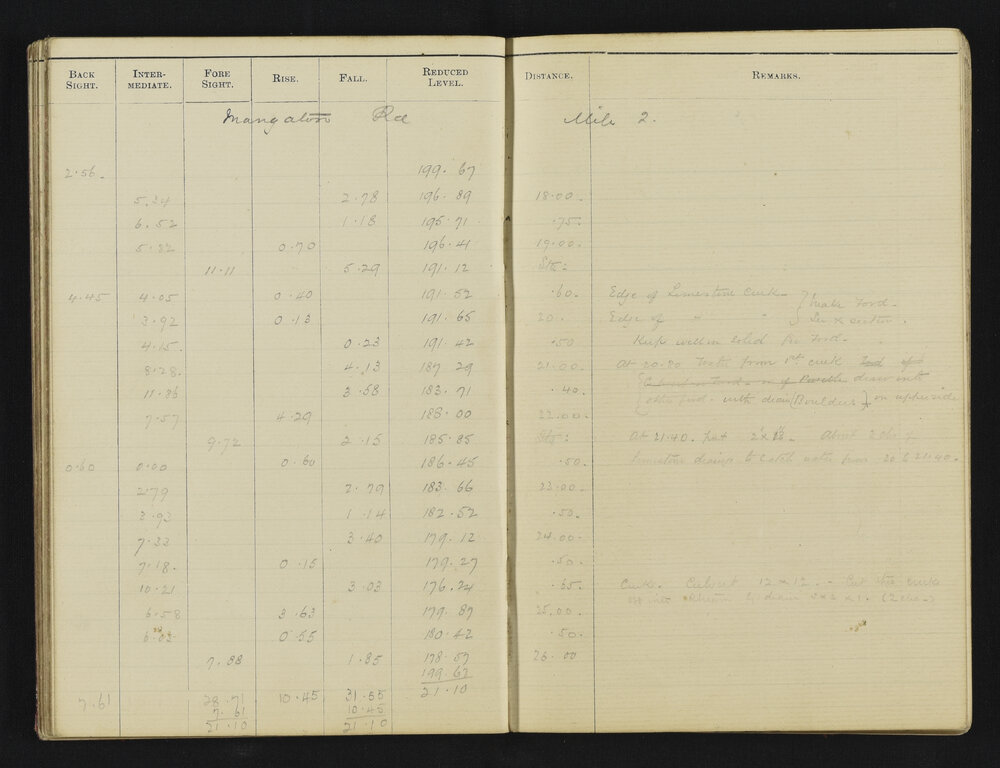 BACK SIGHT. INTER-MEDIATE. FORE SIGHT. RISE. FALL. REDUCED LEVEL. DISTANCE. REMARKS.
Mile 2.
2.56 199.67
5.34 2.78 196.89 18.00
6.52 1.18 195.71 .75
5.82 0.70 196.41 19.00
11.11 5.29 191.12
4.45 4.05 0.40 191.52 .60 Edge of Limestone creek
3.92 0.13 191.65 20. Edge of " "
4.15 0.23 191.42 .50 Keep well on solid for Ford.
8.28 4.13 187.29 21.00 At 20.20 from 1st creek
11.86 3.58 183.71 .40
7.57 4.29 188.00 22.00 with drain (Boulders) on upper side
9.72 2.15 185.85 At 21.40 put
0.60 0.00 0.60 186.45 .50 Limestone drains to catch water from 20 to 21.40.
2.79 2.79 183.66 23.00
3.93 1.14 182.52 .50
7.33 3.40 179.12 24.00
7.18 0.15 179.27 .50
10.21 3.03 176.24 .65 Creek. Culvert 12 x 12. - Cut this creek
6.58 3.63 179.87 25.00
6.03 0.55 180.42 .50
7.88 1.85 178.57 26.00
199.67
7.61 28.71 10.45 31.55 21.10
7.61 10.45
21.10 21.10